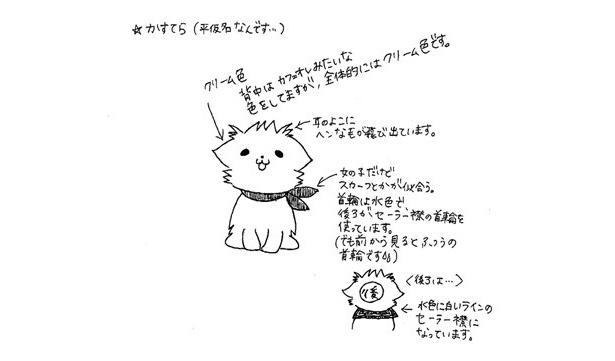 ☆かすてら（平仮名なんです…）
クリーム色
背中はカフェオレみたいな
色をしてますが、全体的にはクリーム色です。
耳のよこに
ヘンな毛が飛び出ています。
女の子だけど
スカーフとかが似合う。
首輪は水色で、
後ろがセーラー襟の首輪を
使っています。
(でも前から見るとふつうの
首輪です)
後
〈後ろは…〉
水色に白いラインの
セーラー襟に
なっています。